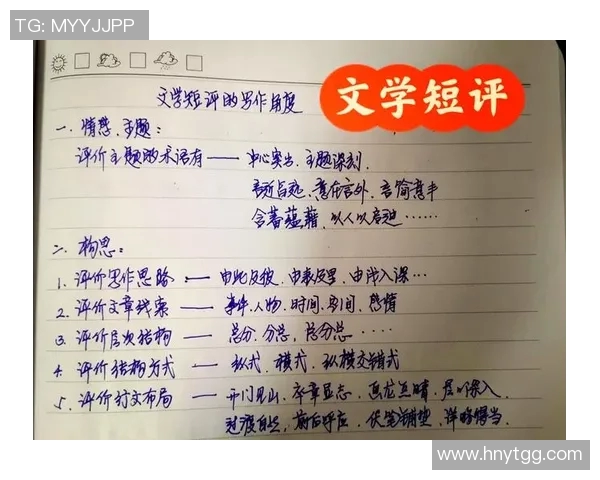 TG: MYYJJPP
文学短评
文学短评的写作角度
一、情感、主题:
评价主题的术语有——中心突出、主题深刻、
言近旨远、意在言外、言简意丰
含蓄蕴藉、以人以启迪……
二、构思:
1、评价写作思路——由此及彼、由表及里、由浅入深…
2、评价文章线索——事件、人物、时间、空间、感情
3、评价层次结构——总分、分总、总分总……
4、评价结构方式——纵式、横式、纵横交错式
5、评价行文布局——开门见山、卒章显志、画龙点睛、层层深入、
过渡自然、前后呼应、伏笔铺垫、详略得当、
www.hnytgg.com